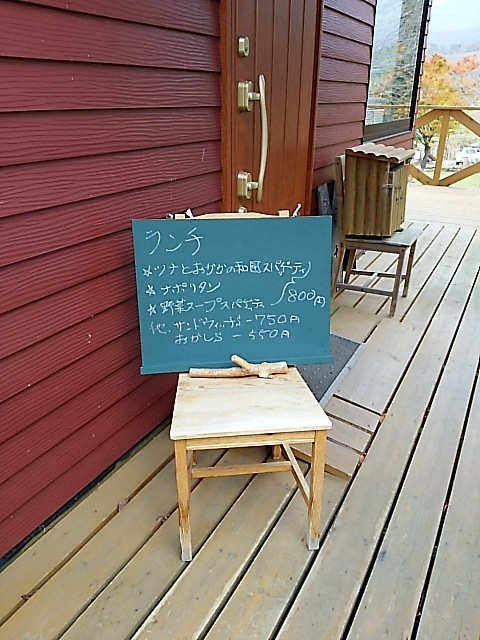 ランチ
☆ツナとおかかの和風スパゲティ
☆ナポリタン
☆野菜スープスパゲティ 800円
他、サンドウィッチ - 750円
- 550円